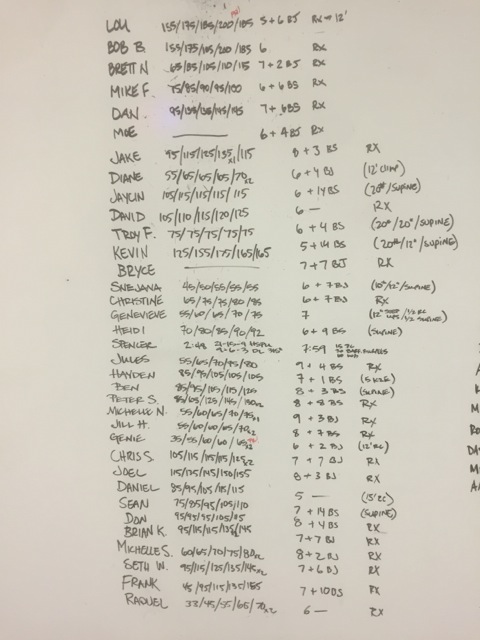 LOU 155/175/185/200/185 5+6 BJ RX 12'
BOB B. 155/175/185/200/185 6 RX
BRETT N 65/85/105/110/115 7+2 BJ RX
MIKE F. 75/85/90/95/100 6+6 BS RX
DAN 95/135/135/145/145 7+6 BS RX
MOE 6+4 BJ RX
JAKE 95/115/125/135x1/115 8+3 BS RX
DIANE 55/65/65/65/70x2 6+4 BJ (12" )
JAYLIN 105/115/115/115/115 6+14 BS (20#/SUPINE)
DAVID 105/110/115/120/125 6 — RX
TROY F. 75/75/75/75/75 6+4 BS (20#/20"/SUPINE)
KEVIN 125/155/175/165/165 5+14 BS (20#/12"/SUPINE)
BRYCE 7+7 BJ RX
SNEJANA 45/50/55/55/55 6+7 BJ (10#/12"/SUPINE)
CHRISTINE 65/75/75/80/85 6+7 BJ RX
GENEVIEVE 55/60/65/70/75 7 (12" 1/2 SUPINE)
HEIDI 70/80/85/90/92 6+9 BS (SUPINE)
SPENCER 2:48 21-15-9 HSPU 7:59
9-6-3 DL 315#
JULES 55/65/70/75/80 9+4 BS RX
HAYDEN 85/95/105/105/105 7+1 BS
BEN 85/95/105/115/125 8+3 BS (SUPINE)
PETER S. 85/105/125/145/150x2 8+8 BS RX
MICHELLE N. 55/60/65/70/75x1 9+3 BJ RX
JILL H. 55/60/60/65/70x2 8+7 BS RX
GENIE 35/55/60/60/65x2 6+2 BJ (12"RC)
CHRIS S 105/115/115/115/125x2 7+7 BJ RX
JOEL 115/125/145/150/155 8+3 BJ RX
DANIEL 85/95/105/115/115 5 — (15"RC)
SEAN 75/85/95/105/110 7+14 BS (SUPINE)
DON 95/95/95/105/115 8+4 BJ RX
BRIAN K. 95/115/115/135/145 7+7 BJ RX
MICHELLE S. 60/65/70/75/80x2 8+2 BJ RX
SETH W. 95/115/125/135/145x2 7+6 BJ RX
FRANK 45/95/115/135/155 7+10 BS RX
RAQUEL 33/45/55/65/70x2 6 — RX